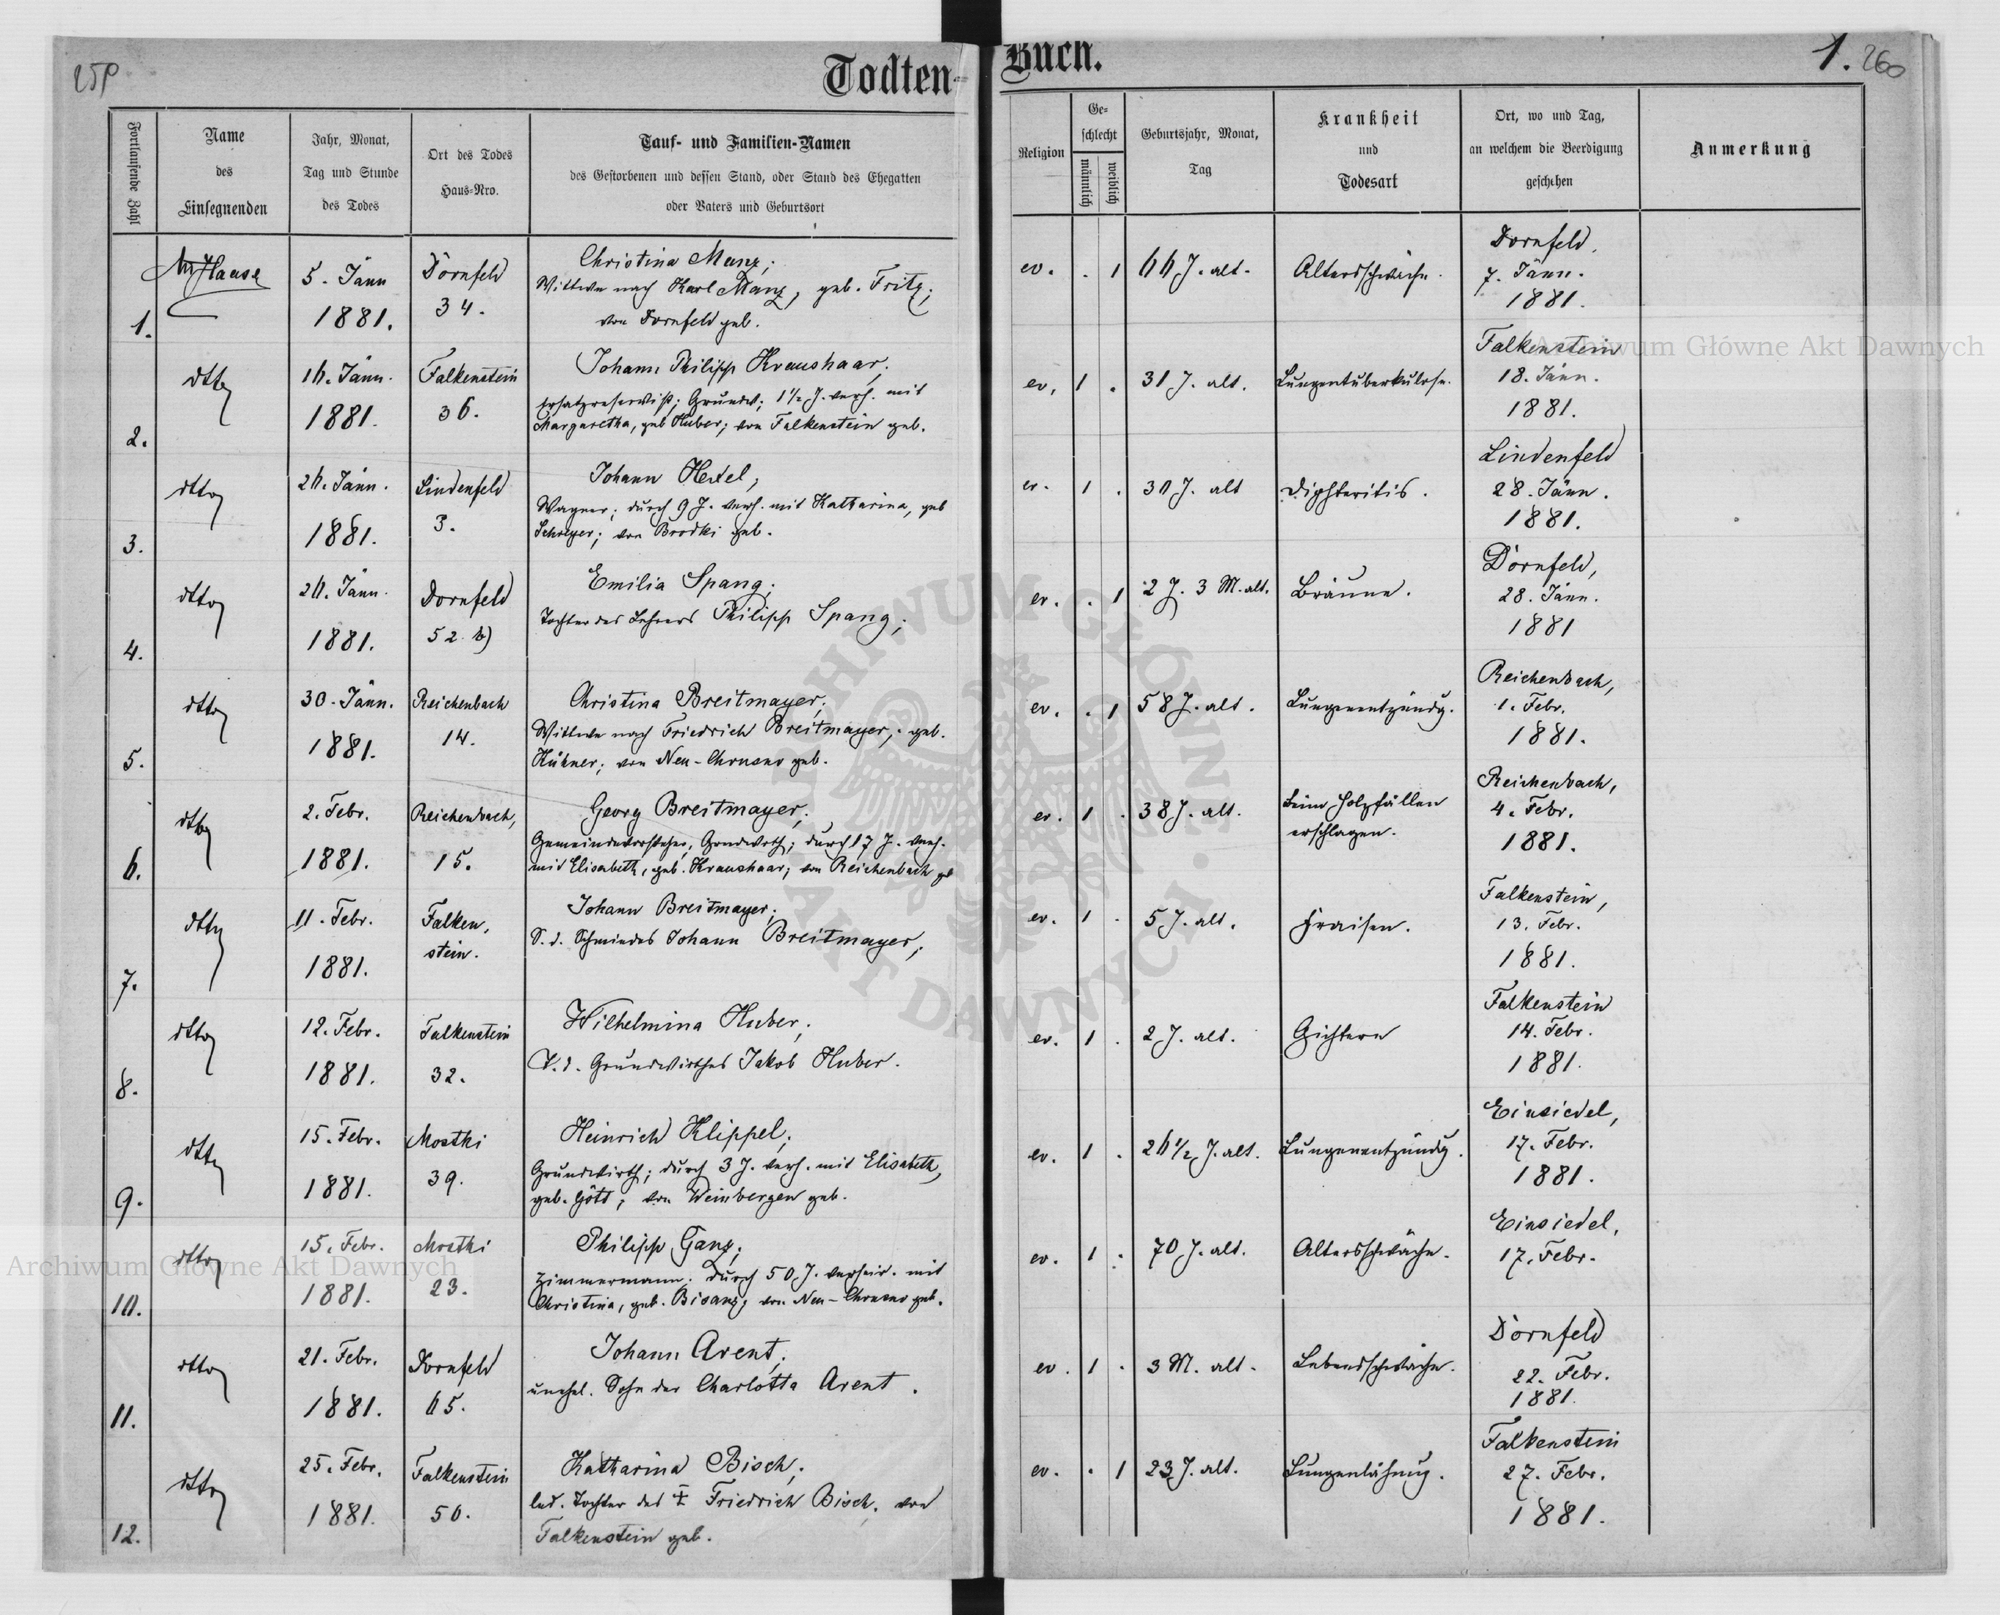 259
Todten-
Buch.
1. 260
Fortlaufende Zahl
Name
des
Einsegnenden
Jahr, Monat,
Tag und Stunde
des Todes
Ort des Todes
Haus-Nro.
Tauf- und Familien-Namen
des Gestorbenen und dessen Stand, oder Stand des Ehegatten
oder Vaters und Geburtsort
Religion
Ge-
schlecht
männlich
weiblich
Geburtsjahr, Monat,
Tag
Krankheit
und
Todesart
Ort, wo und Tag,
an welchem die Beerdigung
geschehen
Anmerkung
1.
Haase
5. Jänn
1881.
Dornfeld
34.
Christina Manz;
Wittwe nach Karl Manz, geb. Fritz;
von Dornfeld geb.
ev. . 1
66 J. alt.
Altersschwäche.
Dornfeld,
7. Jänn.
1881.
2.
dtto
16. Jänn.
1881.
Falkenstein
36.
Johann Philipp Kraushaar,
Ersatzreservist; Grundw; 1½ J. verh. mit
Margaretha, geb Huber; von Falkenstein geb.
ev. 1 .
31 J. alt.
Lungentuberkulose.
Falkenstein
18. Jänn.
1881.
3.
dtto
26. Jänn.
1881.
Lindenfeld
3.
Johann Hexel,
Wagner; durch 9 J. verh. mit Katharina, geb
Schreyer; von Brodki geb.
ev. 1 .
30 J. alt
Diphteritis.
Lindenfeld
28. Jänn.
1881.
4.
dtto
26. Jänn.
1881.
Dornfeld
52 b)
Emilia Spang;
Tochter des Lehrers Philipp Spang;
ev. . 1
2 J. 3 M. alt.
Bräune.
Dornfeld,
28. Jänn.
1881
5.
dtto
30. Jänn.
1881.
Reichenbach
14.
Christina Breitmayer;
Wittwe nach Friedrich Breitmayer, geb.
Hübner; von Neu-Chrusno geb.
ev. . 1
58 J. alt.
Lungenentzündg.
Reichenbach,
1. Febr.
1881.
6.
dtto
2. Febr.
1881.
Reichenbach,
15.
Georg Breitmayer;
Gemeindevorsteher, Grndwrth; durch 17 J. verh.
mit Elisabeth, geb. Kraushaar; von Reichenbach gb
ev. 1 .
38 J. alt.
beim Holzfällen
erschlagen.
Reichenbach,
4. Febr.
1881.
7.
dtto
11. Febr.
1881.
Falken,
stein.
Johann Breitmayer;
S. d. Schmiedes Johann Breitmayer;
ev. 1 .
5 J. alt.
Fraisen.
Falkenstein,
13. Febr.
1881.
8.
dtto
12. Febr.
1881.
Falkenstein
32.
Wilhelmina Huber;
T. d. Grundwirthes Jakob Huber.
ev. 1 .
2 J. alt.
Gichtern
Falkenstein
14. Febr.
1881.
9.
dtto
15. Febr.
1881.
Mostki
39.
Heinrich Klippel;
Grundwirth; durch 3 J. verh. mit Elisabeth,
geb. Gött; von Weinbergen geb.
ev. 1 .
26½ J. alt.
Lungenentzündg.
Einsiedel,
17. Febr.
1881.
10.
dtto
15. Febr.
1881.
Mostki
23.
Philipp Ganz;
Zimmermann; durch 50 J. verheir. mit
Christina, geb. Bisanz; von Neu-Chrusno geb.
ev. 1 .
70 J. alt.
Altersschwäche.
Einsiedel,
17. Febr.
11.
dtto
21. Febr.
1881.
Dornfeld
65.
Johann Arent;
unehel. Sohn der Charlotta Arent.
ev. 1 .
3 M. alt.
Lebensschwäche.
Dornfeld
22. Febr.
1881.
12.
dtto
25. Febr.
1881.
Falkenstein
50.
Katharina Bisch;
led. Tochter des ‡ Friedrich Bisch, von
Falkenstein geb.
ev. . 1
23 J. alt.
Lungenlähmung.
Falkenstein
27. Febr.
1881.
Archiwum Główne Akt Dawnych
Archiwum Główne Akt Dawnych
ARCHIWUM GŁÓWNE AKT DAWNYCH